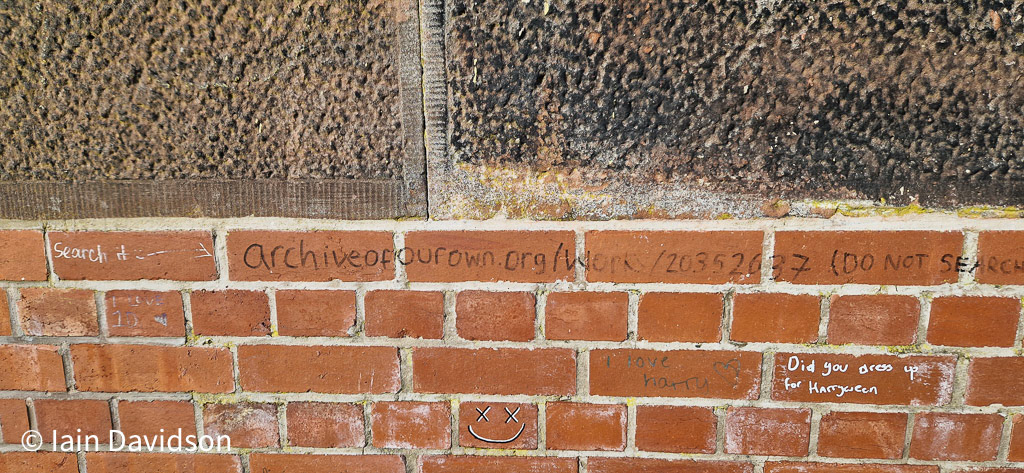 Search it
archiveofourown.org/works/20352637 (DO NOT SEARCH
I love
1D
I love
harry
Did you dress up
for Harryween
© Iain Davidson